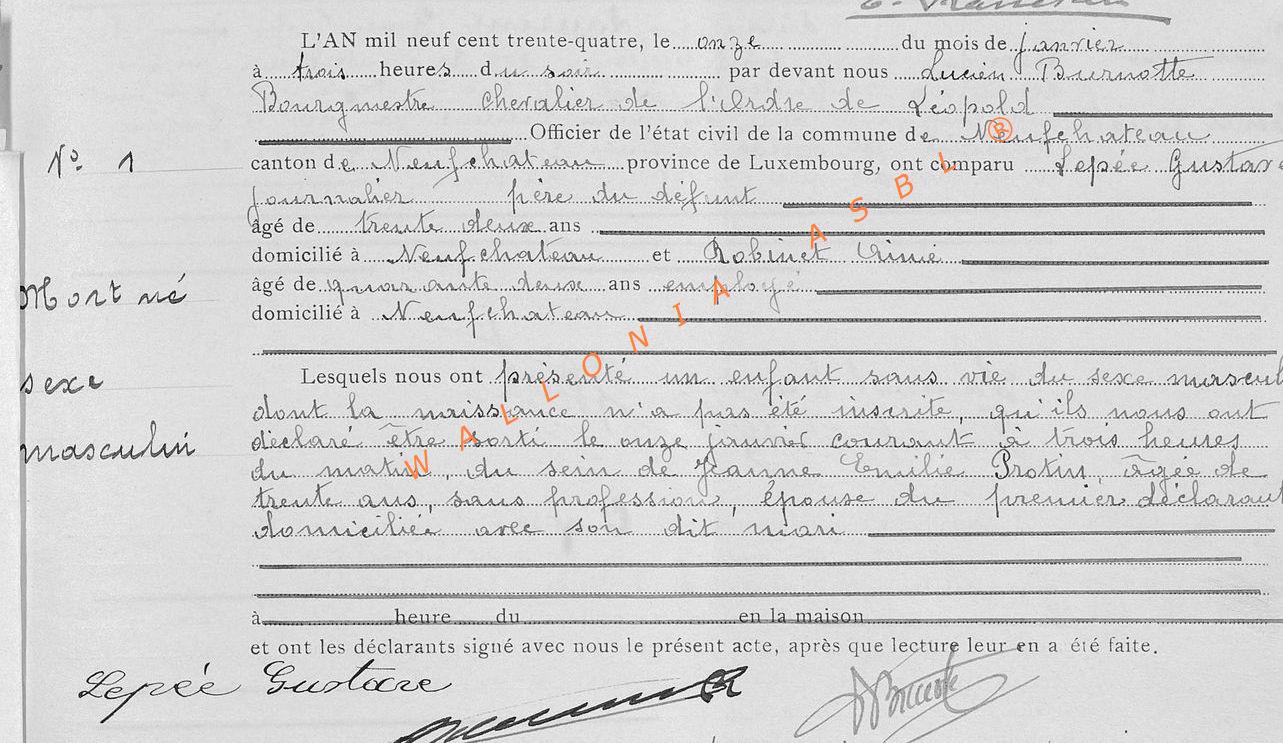 L'AN mil neuf cent trente-quatre, le onze du mois de janvier
à trois heures du soir par devant nous Lucien Burnotte
Bourgmestre Chevalier de l'Ordre de Léopold
Officier de l'état civil de la commune de Neufchateau
N° 1
canton de Neufchateau province de Luxembourg, ont comparu Lepée Gustave
journalier père du défunt
âgé de trente deux ans
domicilié à Neufchateau et Robinet Aimé
Mort né
âgé de quarante deux ans employé
domicilié à Neufchateau
sexe
Lesquels nous ont présenté un enfant sans vie du sexe mascul
dont la naissance n'a pas été inscrite, qu'ils nous ont
masculin
déclaré être sorti le onze janvier courant à trois heures
du matin, du sein de Jeanne Emilie Protin, âgée de
trente ans, sans profession, épouse du premier déclarant
domiciliée avec son dit mari
à heure du en la maison
et ont les déclarants signé avec nous le présent acte, après que lecture leur en a été faite.
Lepée Gustave
WALLONIA ASBL ®